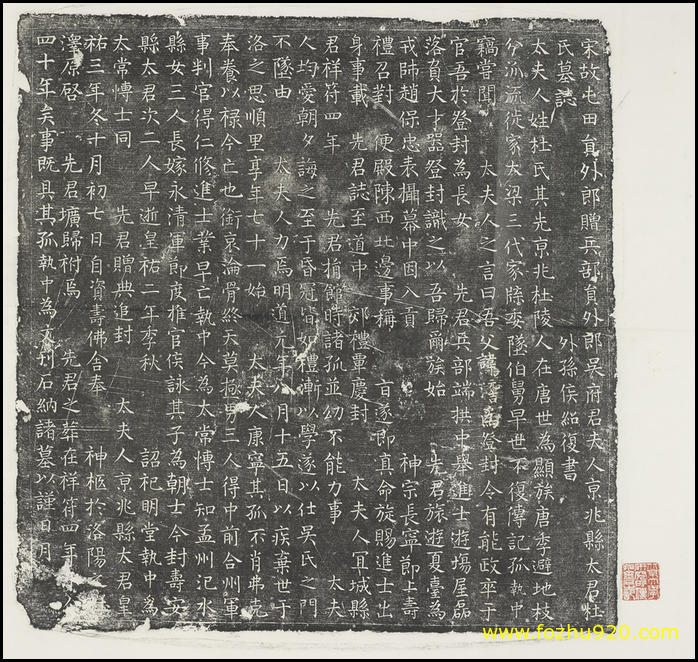 宋故屯田員外郎贈兵部員外郎吳府君夫人京兆縣太君杜
氏墓誌 外孫侯紹復書
太夫人姓杜氏其先京兆杜陵人在唐世為顯族唐季避地枝
分派流徙家大梁三代家牒委墜伯舅早世不復傳記孤執中
竊嘗聞 太夫人之言曰吾父諱 為登封令有能政卒于
官吾於登封為長女 先君兵部端拱中舉進士遊場屋磊
落負大才器登封識之以吾歸爾族始 先君旅遊夏臺為
戎帥趙保忠表攝幕中因入貢 神宗長寧節上壽
禮召對 便殿陳西北邊事稱 旨遂即真命旋賜進士出
身事載 先君誌至道中 郊禮覃慶封 太夫人冝城縣
君祥符四年 先君捐館時諸孤並幼不能力事 太夫
人均愛朝夕誨之至于昏冠皆如禮漸以學遂以仕吳氏之門
不墜由 太夫人力焉明道元年八月十五日以疾棄世于
洛之思順里享年七十一始 太夫人康寧其孤不肖弗克
奉養以祿今亡也銜哀淪骨終天莫 男三人得中前合州軍
事判官得仁修進士業早亡執中今為太常博士知孟州汜水
縣女三人長嫁永清軍節度推官侯詠其子為朝士今封壽安
縣太君次二人早逝皇祐二年季秋 詔祀明堂執中為
太常博士同 先君贈典追封 太夫人京兆縣太君皇
祐三年冬十月初七日自資壽佛舍奉 神柩於洛陽
澤原啓 先君壙歸祔焉 先君之葬在祥符四年
四十年矣事既具其孤執中為文刊石納諸墓以謹日月
www.fozhu920.com